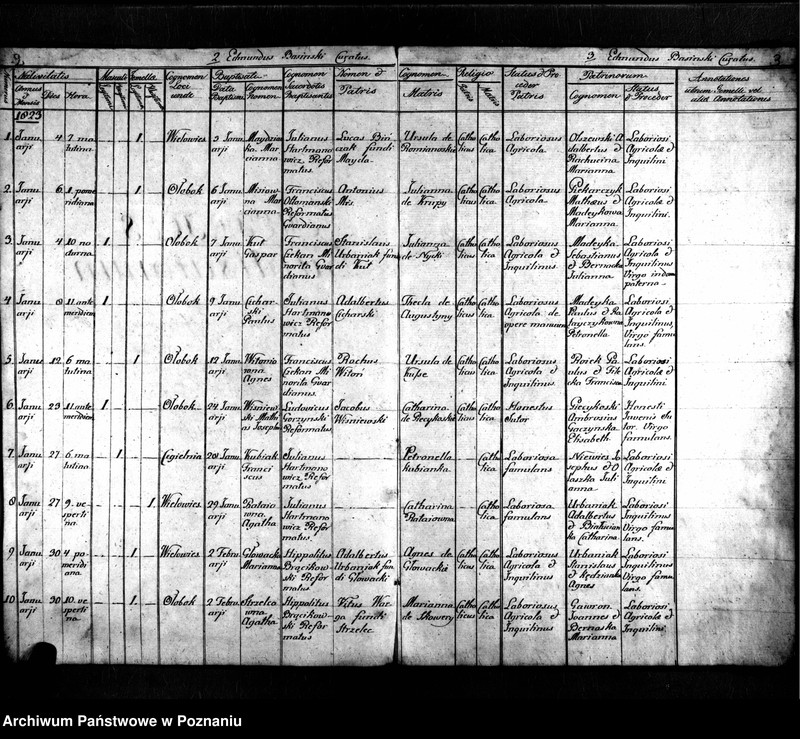 3. 2 Edmundus Basinski Curatus. 3 Edmundus Basinski Curatus. 3.
Nativitatis Masculi Femella Cognomen Loci unde Baptisati Cognomen Sacerdotis Baptisantis Nomen & Patris Cognomen Matris Religio Status & Proceder Patris Patrinorum Annotationes
Annus & Mensis Dies Hora Data Baptismi Cognomen Nomen Patris Matris Cognomen Status & Proceder
1823
1. Januarji 4 7 matutina 1. Wielowies 5 Januarji Marcianna Julianus Hartmanowicz Reformatus Lucas fundi Mayda Ursula de Romianowskie Catholicus Catholica Laboriosus Agricola. Olszewski Adalbertus & Marianna Laboriosi Agricolæ & Inquilini
2. Januarji 6 1. pomeridiana 1 Ołobok 6 Januarji Misiowna Marcianna Franciscus Reformatus Gvardianus Antonius Mis. Julianna de Krupy Catholicus Catholica Laboriosus Agricola Piekarczyk Mathæus & Madeykowa Marianna Laboriosi Agricolæ & Inquilini.
3. Januarji 4 10 nocturna 1 Ołobok 7 Januarji Kut Gaspar Franciscus Cirkan Minorita Gvardianus Stanislaus Urbaniak fundi Kut Julianna de Nycki Catholicus Catholica Laboriosus Agricola & Inquilinus Madeyka Sebastianus & Julianna Laboriosi Agricola & Inquilinus Virgo
4. Januarji 8 11. ante meridiem 1 Ołobok 9 Januarji Cicharski Paulus Julianus Hartmanowicz Reformatus Adalbertus Cicharski Thecla de Augustyny Catholicus Catholica Laboriosus Agricola de opere manuum Madeyka Paulus & Ratayczykowna Petronella Laboriosi Agricola & Inquilinus, Virgo famulans.
5. Januarji 12. 6 matutina 1 Ołobok 12 Januarji Agnes Franciscus Cirkan Minorita Gvardianus. Rochus Witon Ursula de Catholicus Catholica Laboriosus Agricola & Inquilinus. Paulus & Francisca Laboriosi Agricolæ & Inquilini
6. Januarji 23 11. ante meridiem 1 Ołobok 24 Januarji Wisniewski Mathias Joseph Ludovicus Gorzynski Reformatus Jacobus Wisniewski Catharina de Catholicus Catholica Honestus Sutor Ambrosius Gorzynska Elisabeth Honesti Juvenis Sutor. Virgo famulans.
7. Januarji 27 6 matutina 1 Cegielnia 28 Januarji Kubiak Franciscus Julianus Hartmanowicz Reformatus Petronella Kubianka Catholica Laboriosa famulans Josephus & Julianna Laboriosi Agricolæ & Inquilini
8 Januarji 27 9. vespertina 1. Wielowies 29 Januarji Rataiowna Agatha Julianus Hartmanowicz Reformatus. Catharina Rataiowna Catholica Laboriosa famulans. Urbaniak Adalbertus & Catharina Laboriosi Inquilinus Virgo famulans.
9 Januarji 30 4. pomeridiana 1 Wielowies 2 Februarji Głowacka Marianna Hippolitus Reformatus Adalbertus Urbaniak fundi Głowacki Agnes de Głowackie Catholicus Catholica Laboriosus Agricola & Inquilinus Urbaniak Stanislaus & Agnes Laboriosi Inquilinus Virgo famulans.
10. Januarji 30 10. vespertina 1 Ołobok 2 Februarji Strzelcowna Agatha Hippolitus Reformatus Vitus fundi Strzelec Marianna de Skowery Catholicus Catholica Laboriosus Agricola & Inquilinus Gawron Joannes & Bernaska Marianna Laboriosi Agricolæ & Inquilini
Archiwum Państwowe w Poznaniu